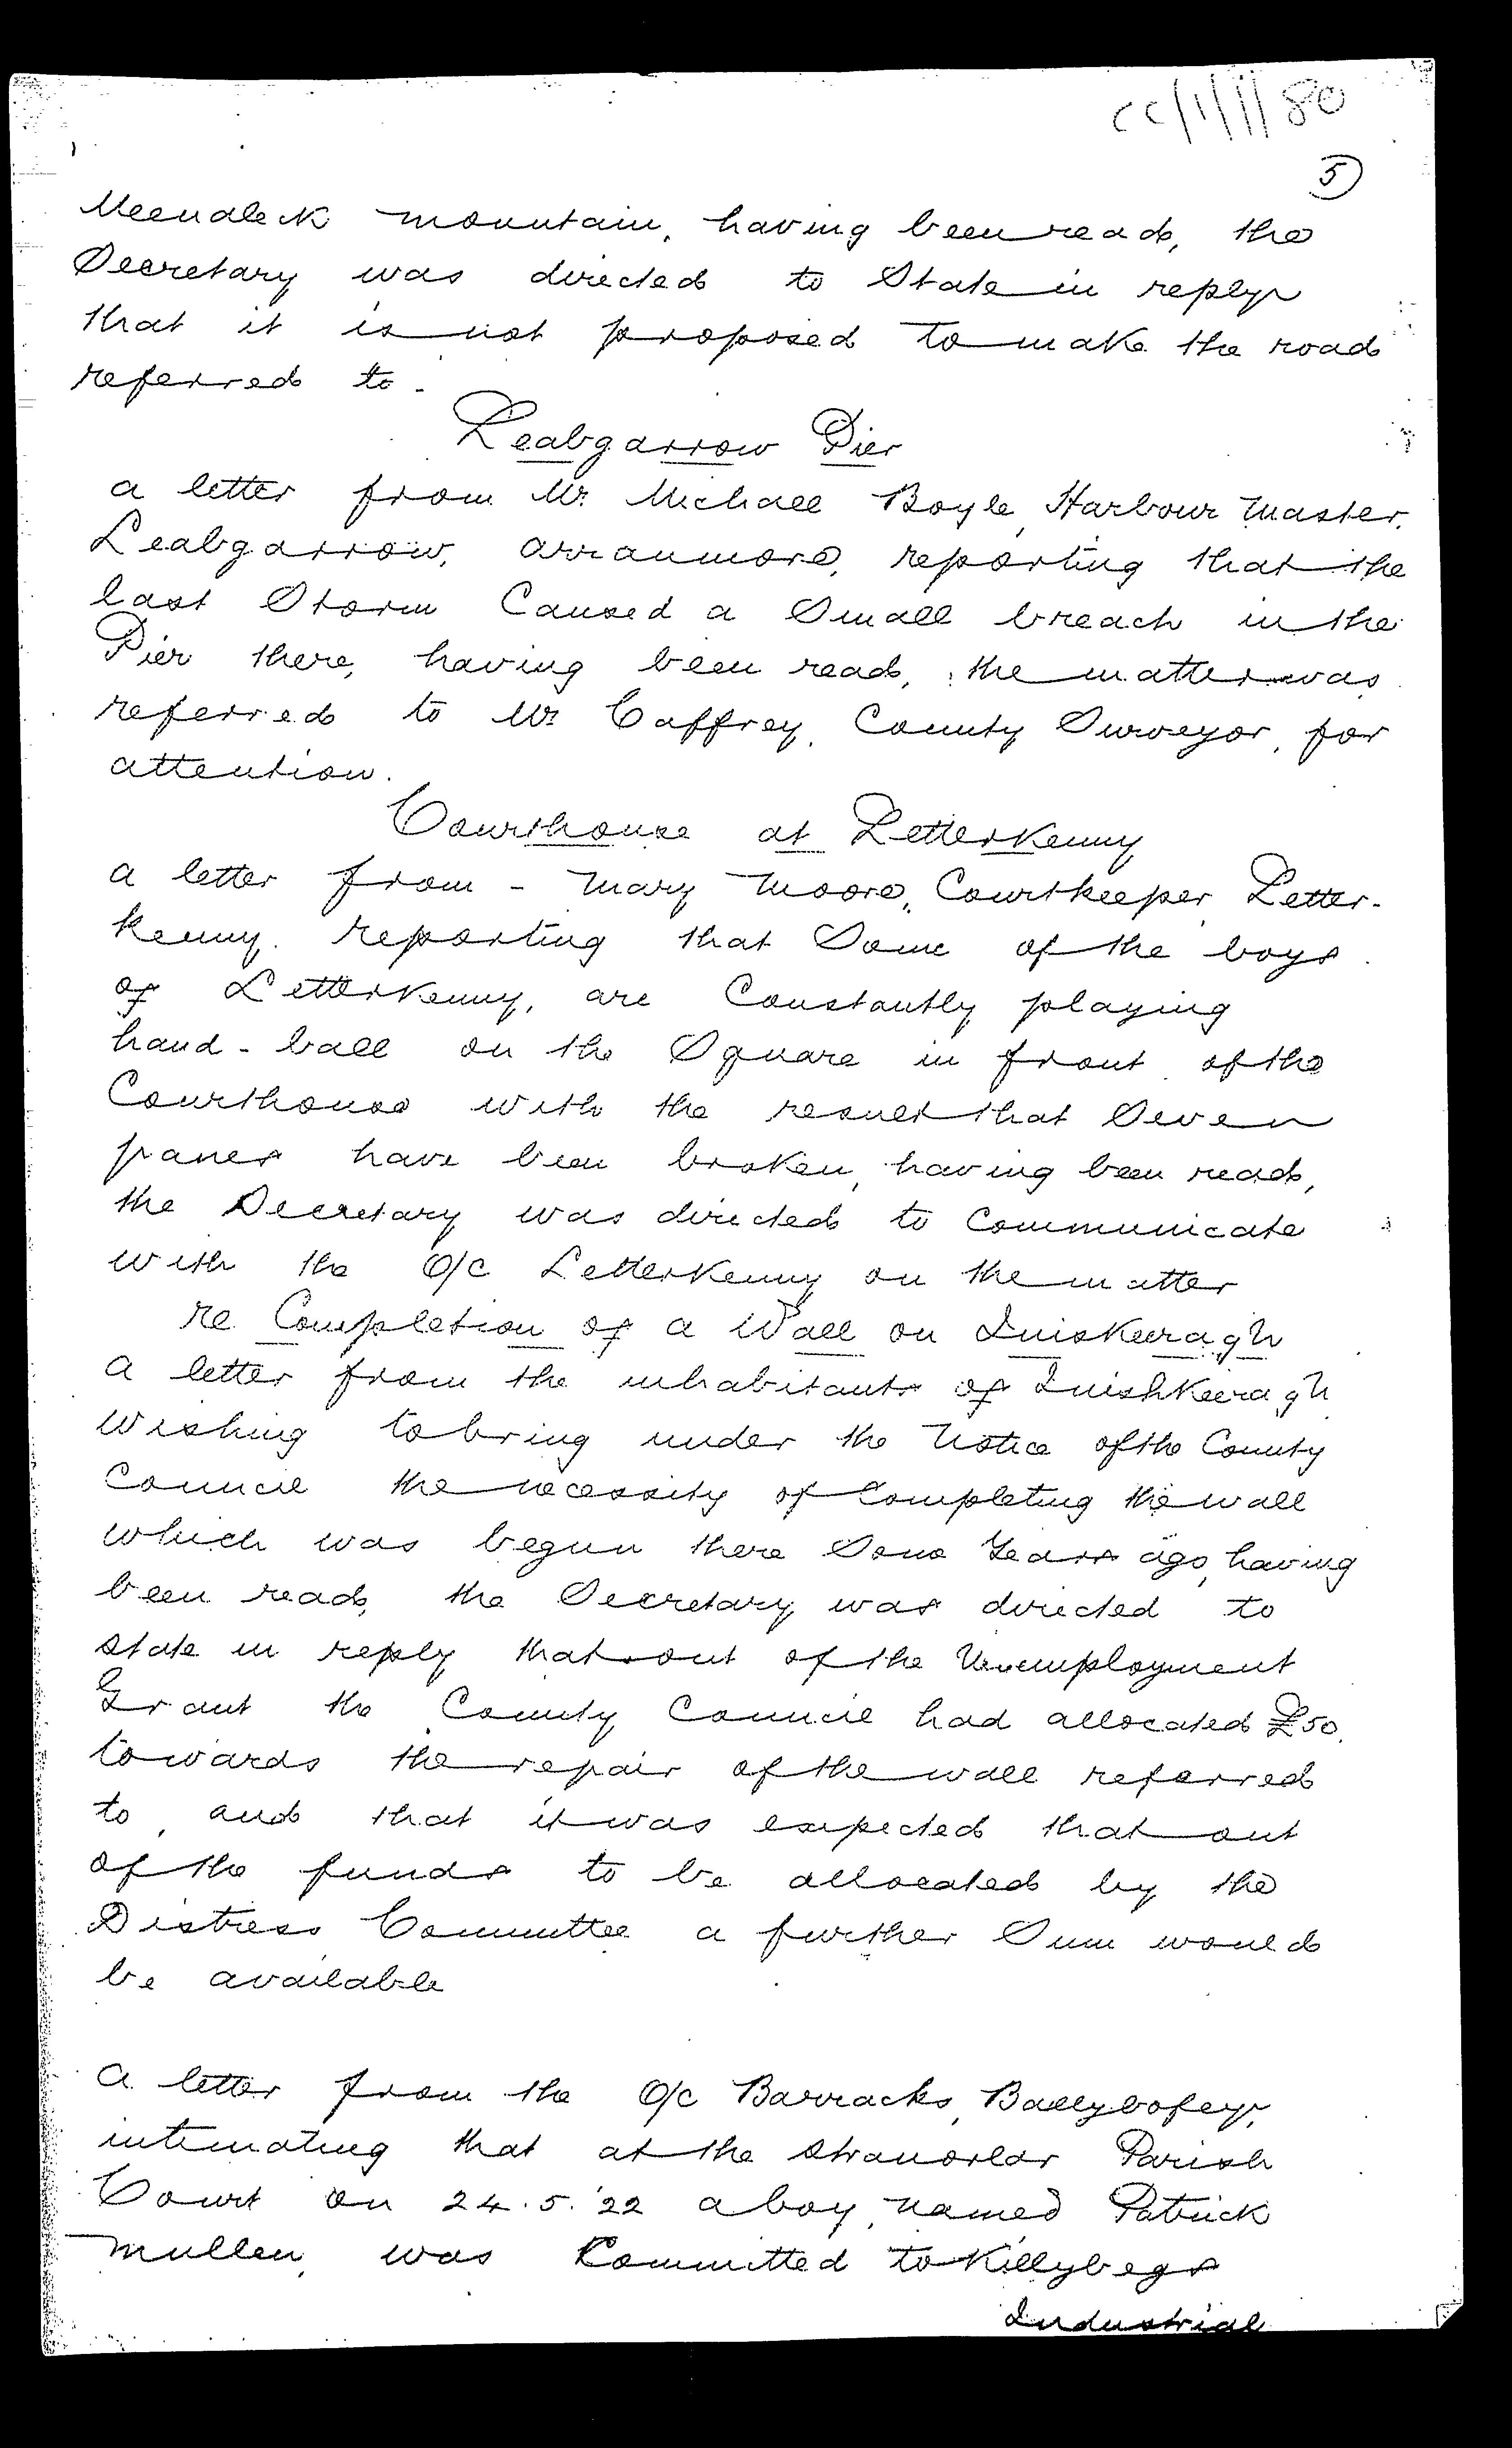 CC/1/1/80
5
Meenaleck mountain, having been read, the
Secretary was directed to State in reply
that it is not proposed to make the road
referred to.
Leabgarrow Pier
a letter from Mr. Michael Boyle, Harbour Master,
Leabgarrow, Arranmore, reporting that the
last Storm Caused a Small breach in the
Pier there, having been read, the matter was
referred to Mr. Caffrey, County Surveyor, for
attention.
Courthouse at Letterkenny
a letter from - Mary Moore, Courtkeeper, Letter-
kenny, reporting that Some of the boys
of Letterkenny, are Constantly playing
hand-ball on the Square in front of the
Courthouse with the result that Seven
panes have been broken, having been read,
the Secretary was directed to Communicate
with the O/C Letterkenny on the matter
re Completion of a Wall on Iniskeeragh
a letter from the inhabitants of Inishkeeragh
wishing to bring under the Notice of the County
Council the necessity of Completing the wall
which was begun there Some Years ago, having
been read, the Secretary was directed to
state in reply that out of the Unemployment
Grant the County Council had allocated £50.
towards the repair of the wall referred
to, and that it was expected that out
of the funds to be allocated by the
Distress Committee a further Sum would
be available
a letter from the O/C Barracks, Ballybofey,
intimating that at the Stranorlar Parish
Court on 24.5.'22 a boy, named Patrick
Mullen, was Committed to Killybegs
Industrial